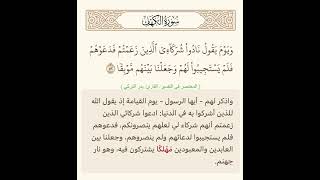 سُورَةُ الكَهْفِ
وَيَوْمَ يَقُولُ نَادُوا۟ شُرَكَآءِىَ ٱلَّذِينَ زَعَمْتُمْ فَدَعَوْهُمْ
فَلَمْ يَسْتَجِيبُوا۟ لَهُمْ وَجَعَلْنَا بَيْنَهُم مَّوْبِقًا ٥٢
واذكر لهم - أيها الرسول - يوم القيامة إذ يقول الله
للذين أشركوا به في الدنيا: ادعوا شركائي الذين
زعمتم أنهم شركاء لي لعلهم ينصرونكم، فدعوهم
فلم يستجيبوا لدعائهم ولم ينصروهم، وجعلنا بين
العابدين والمعبودين مَهْلكًا يشتركون فيه، وهو نار
جهنم.